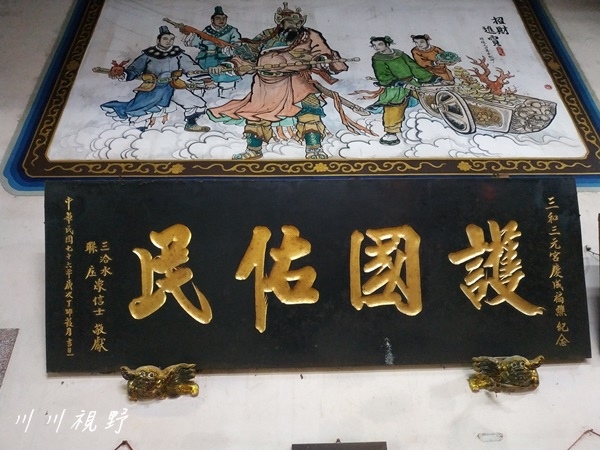 招財
進寶
三和三元宮慶成福醮紀念
護國佑民
三洽水
聯庄
眾信士 敬獻
中華民國七十六年歲次丁卯月吉旦
川川視野